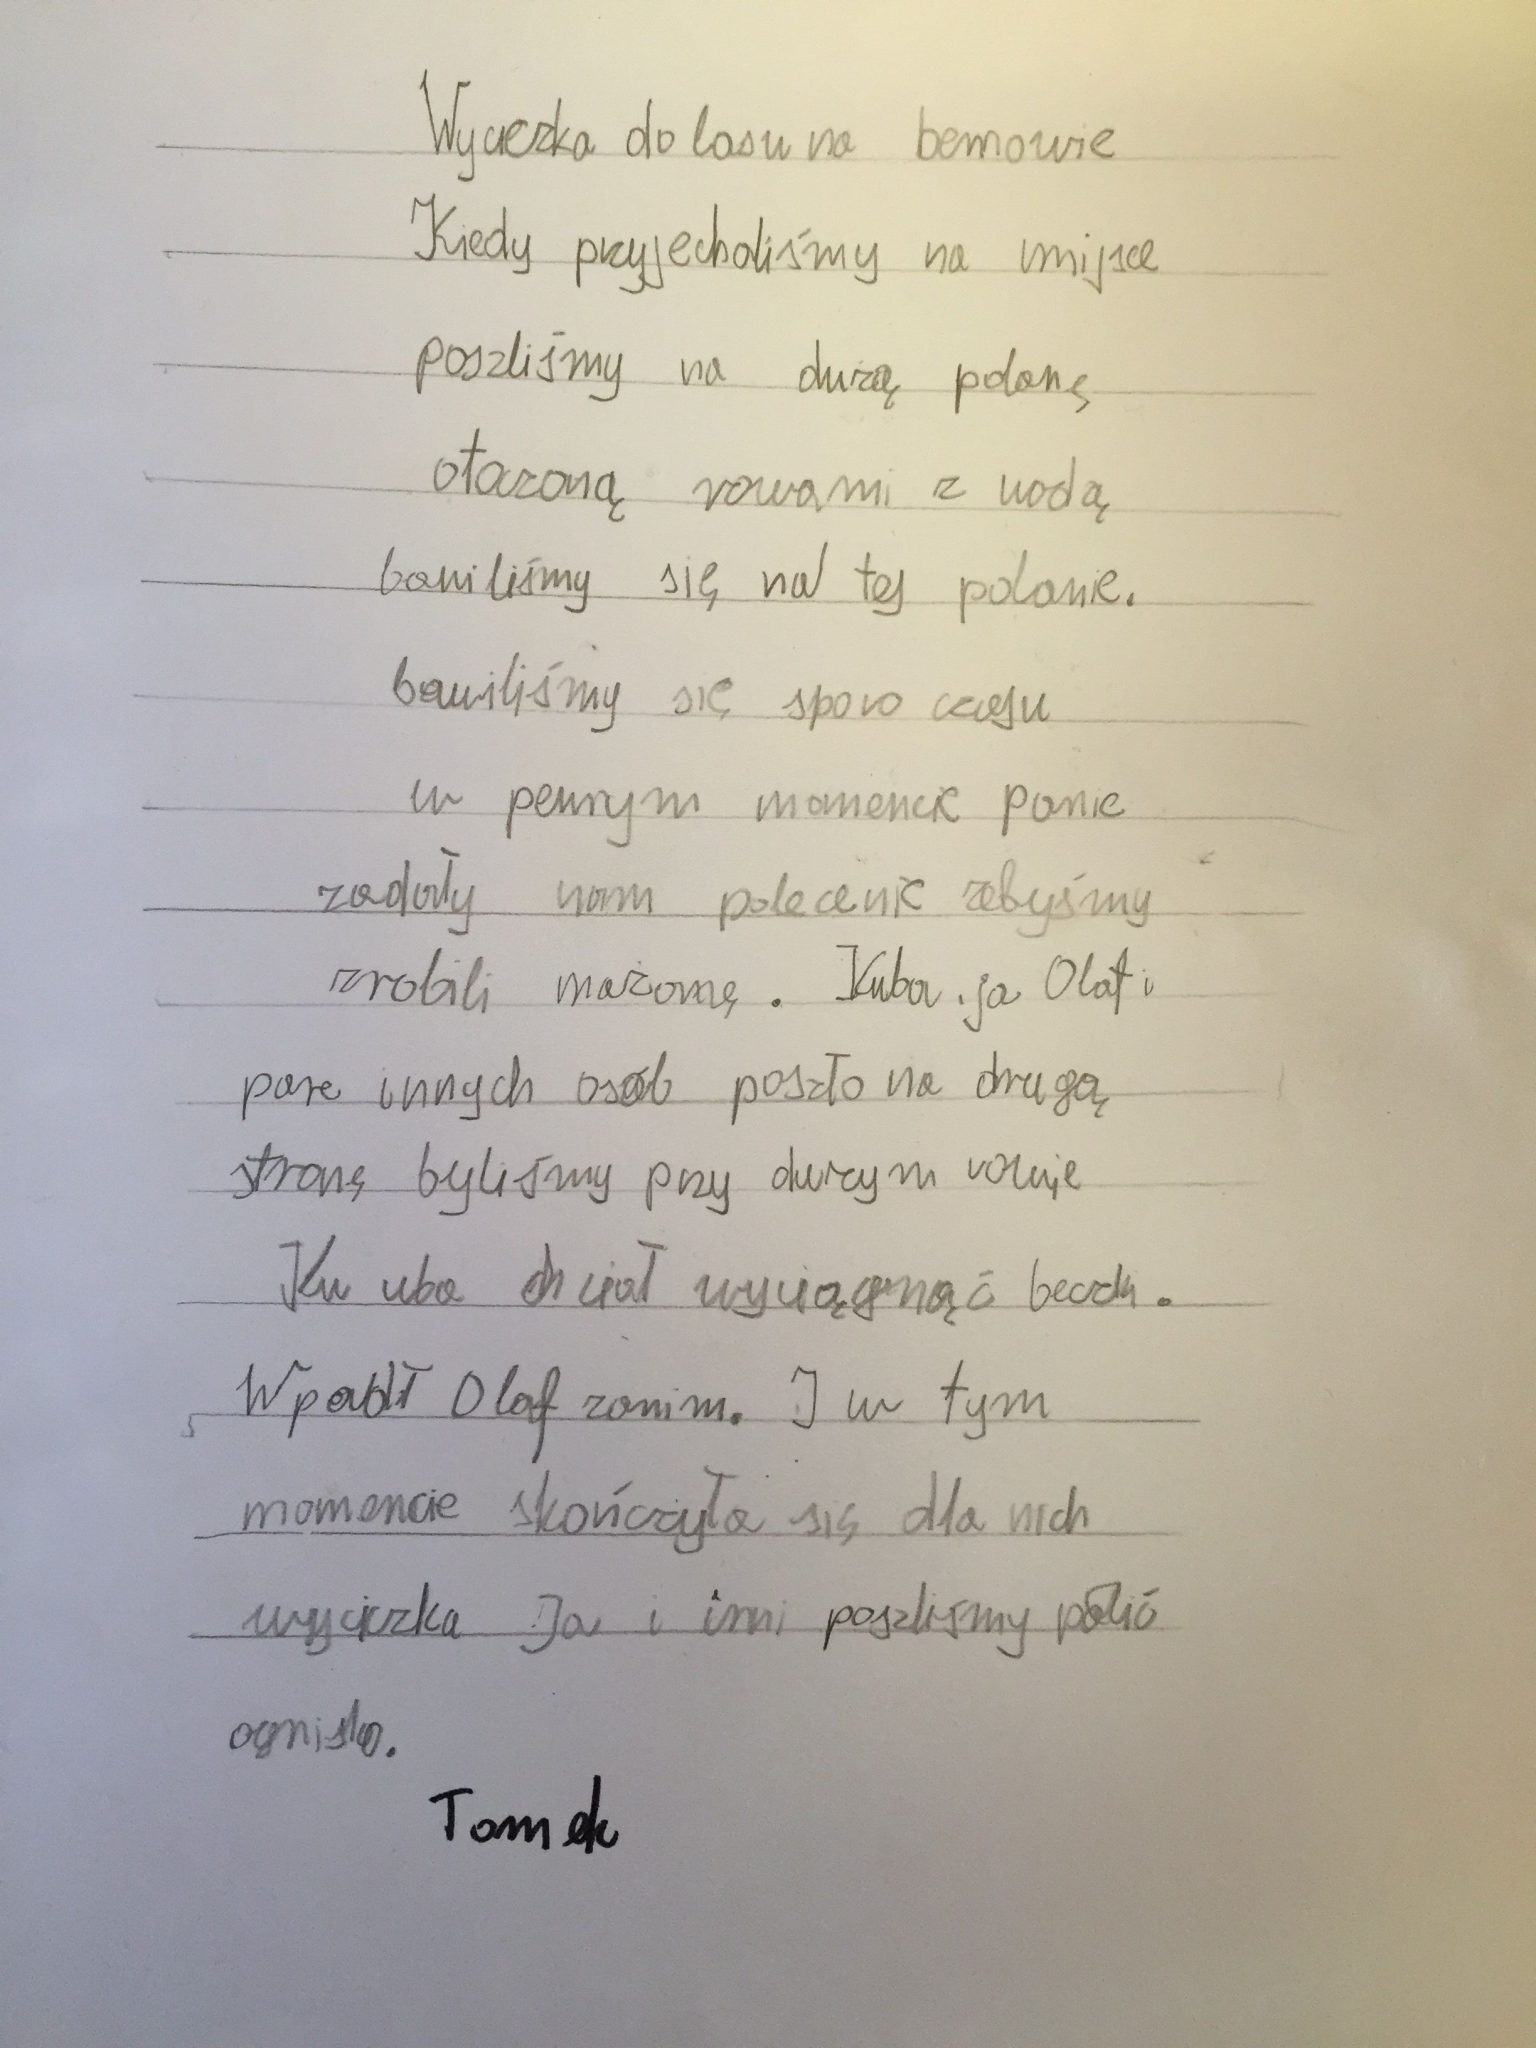 Wycieczka do lasu na bemowie
Kiedy przyjechaliśmy na miejsce
poszliśmy na dużą polanę
otaczoną rowami z wodą
bawiliśmy się na tej polanie.
bawiliśmy się sporo czasu
w pewnym momencie panie
zadały nam polecenie żebyśmy
zrobili mażomę. Kuba, ja Olaf i
pare innych osób poszło na drugą
stronę byliśmy przy dużym rowie
Ku uba chciał wyciągnąć
Wpadł Olaf zanim. I w tym
momencie skończyła się dla nich
wycieczka Ja i inni poszliśmy palić
ognisko.
Tomek